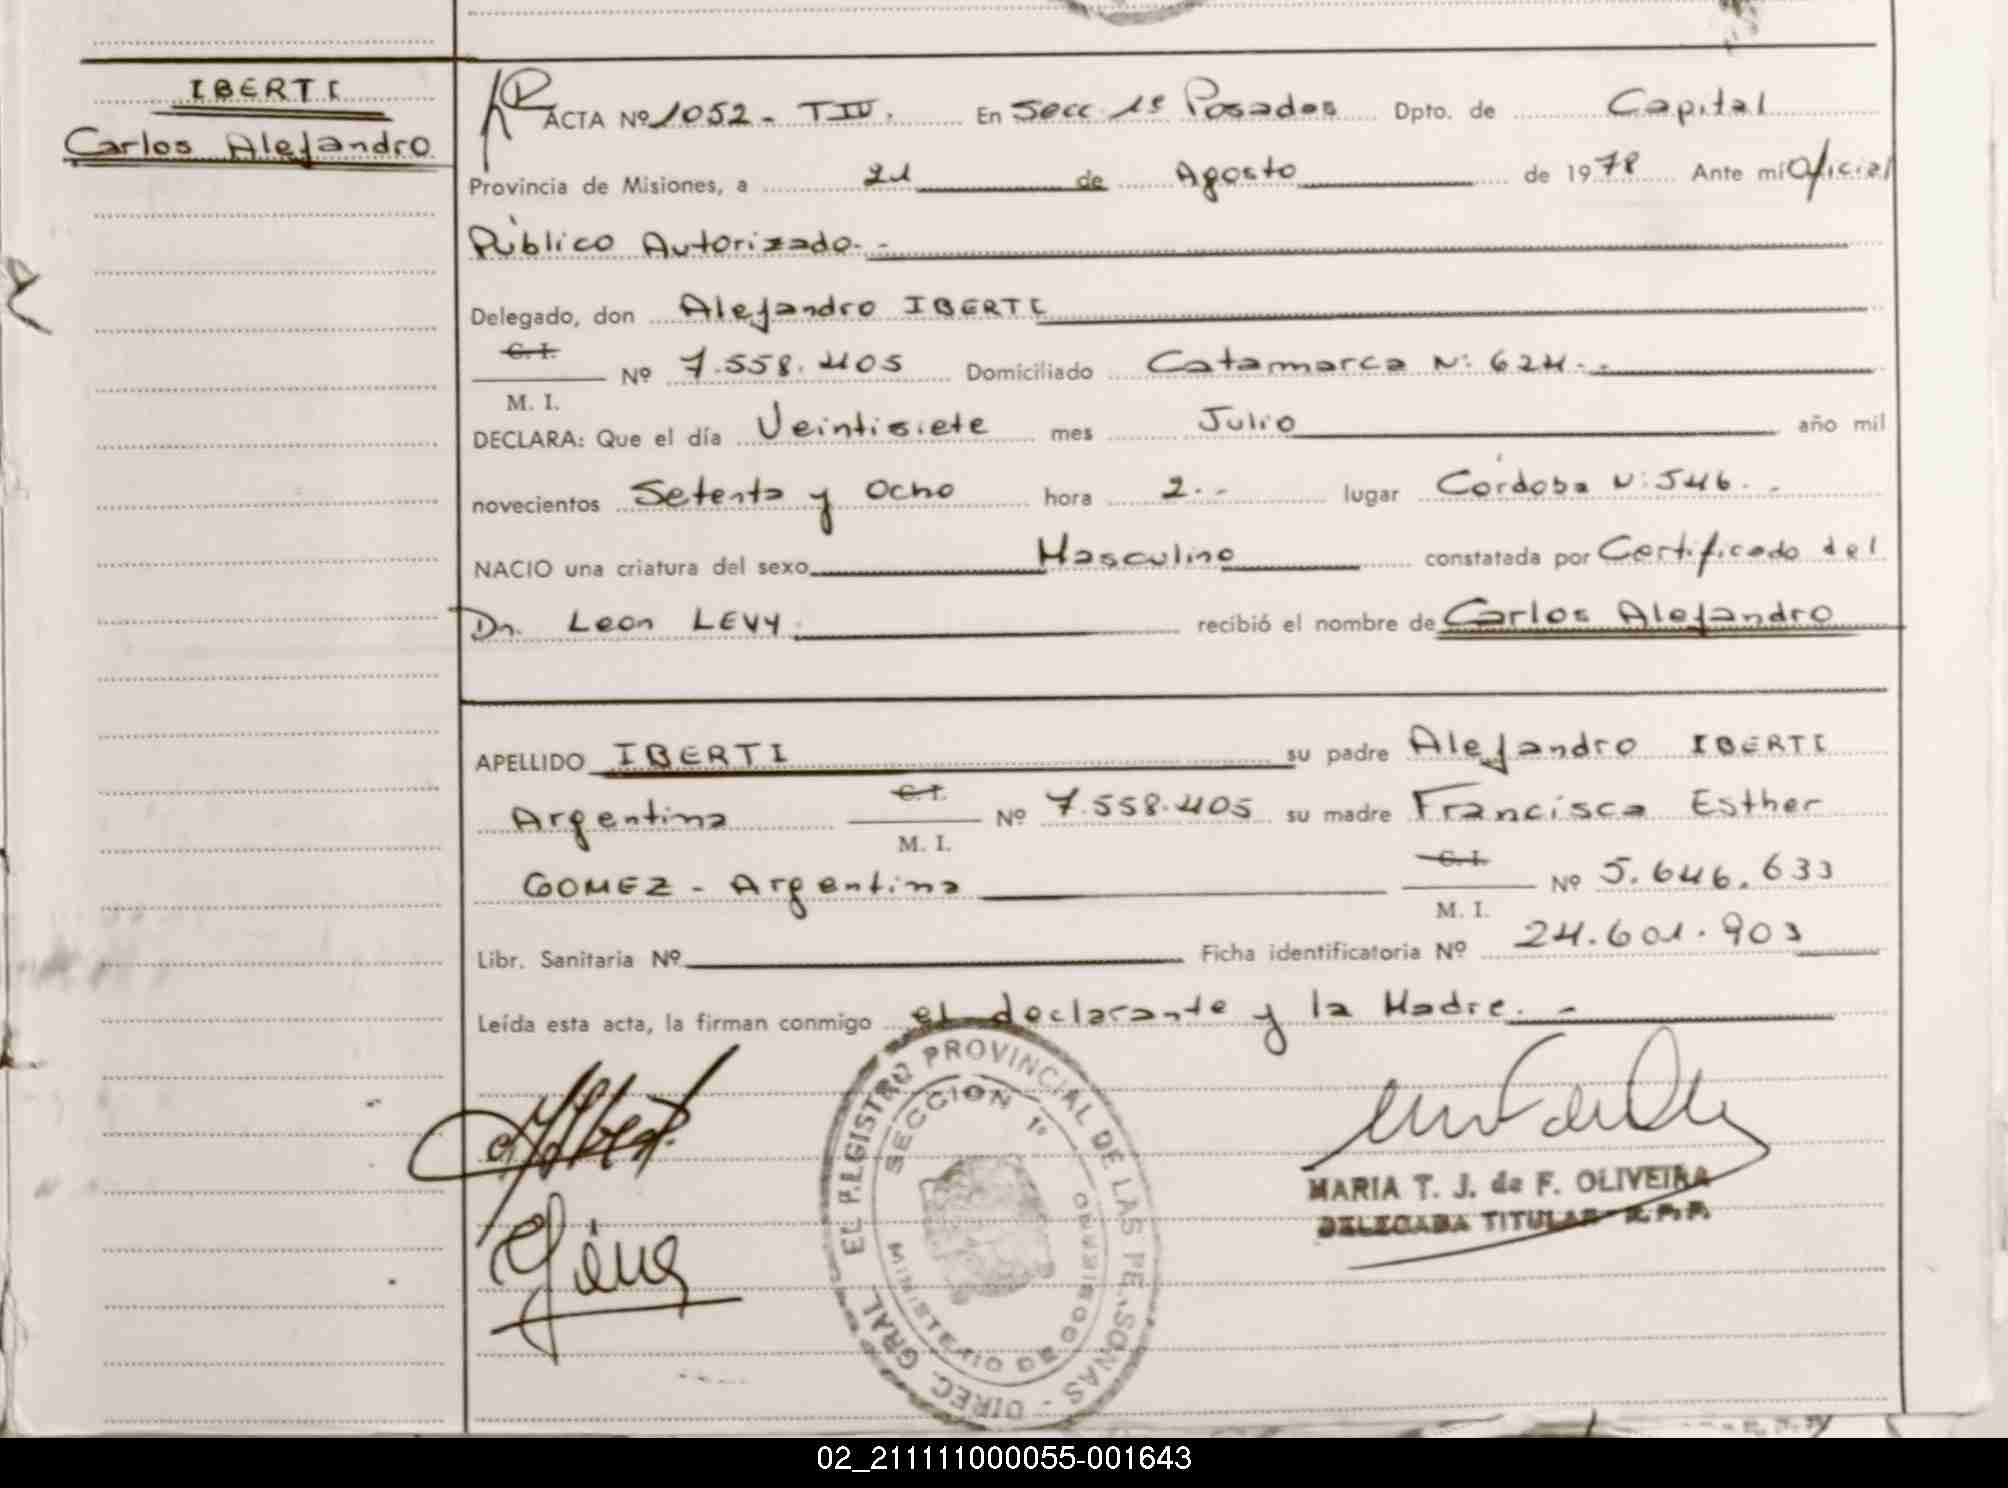 IBERTI
Carlos Alejandro
ACTA Nº 1052 - TIV. En Secc. 1ª Posadas Dpto. de Capital
Provincia de Misiones, a 21 de Agosto de 1978 Ante mi Oficial
Público Autorizado.-
Delegado, don Alejandro IBERTI
C. I.
Nº 7.558.405 Domiciliado Catamarca Nº 624.-
M. I.
DECLARA: Que el día Veintisiete mes Julio año mil
novecientos Setenta y Ocho hora 2.- lugar Córdoba Nº 546.-
NACIO una criatura del sexo Masculino constatada por Certificado del
Dr. Leon LEVY. recibió el nombre de Carlos Alejandro
APELLIDO IBERTI su padre Alejandro IBERTI
C. I.
Argentina Nº 7.558.405 su madre Francisca Esther
M. I.
C. I.
GOMEZ - Argentina Nº 5.646.633
M. I.
Libr. Sanitaria Nº Ficha identificatoria Nº 24.601.903
Leída esta acta, la firman conmigo el declarante y la Madre.-
DIREC. GRAL. DEL REGISTRO PROVINCIAL DE LAS PERSONAS -
SECCION 1ª
MINISTERIO DE GOBIERNO
MARIA T. J. de F. OLIVEIRA
DELEGADA TITULAR R.P.P.
02_211111000055-001643